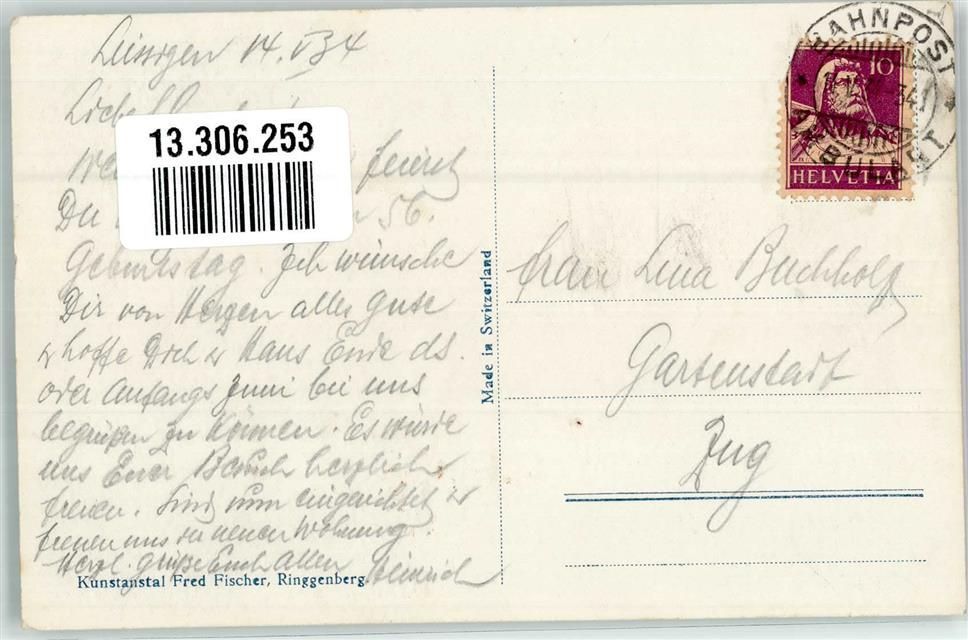 Leissigen 14. V 34
13.306.253
feierst
Du 56.
Geburtstag. Ich wünsche
Dir von Herzen alles Gute
& hoffe Dich & Hans Ende ds.
oder Anfangs Juni bei uns
begrüßen zu können. Es würde
uns Euer Besuch herzlich
freuen. Sind nun eingerichtet &
freuen uns in neuer Wohnung.
Herzl. Grüße Euch Allen
Heinrich
Kunstanstal Fred Fischer, Ringgenberg.
Made in Switzerland
BAHNPOST
AMBULANT
10
HELVETIA
Frau Lina Buchholz
Gartenstadt
Zug